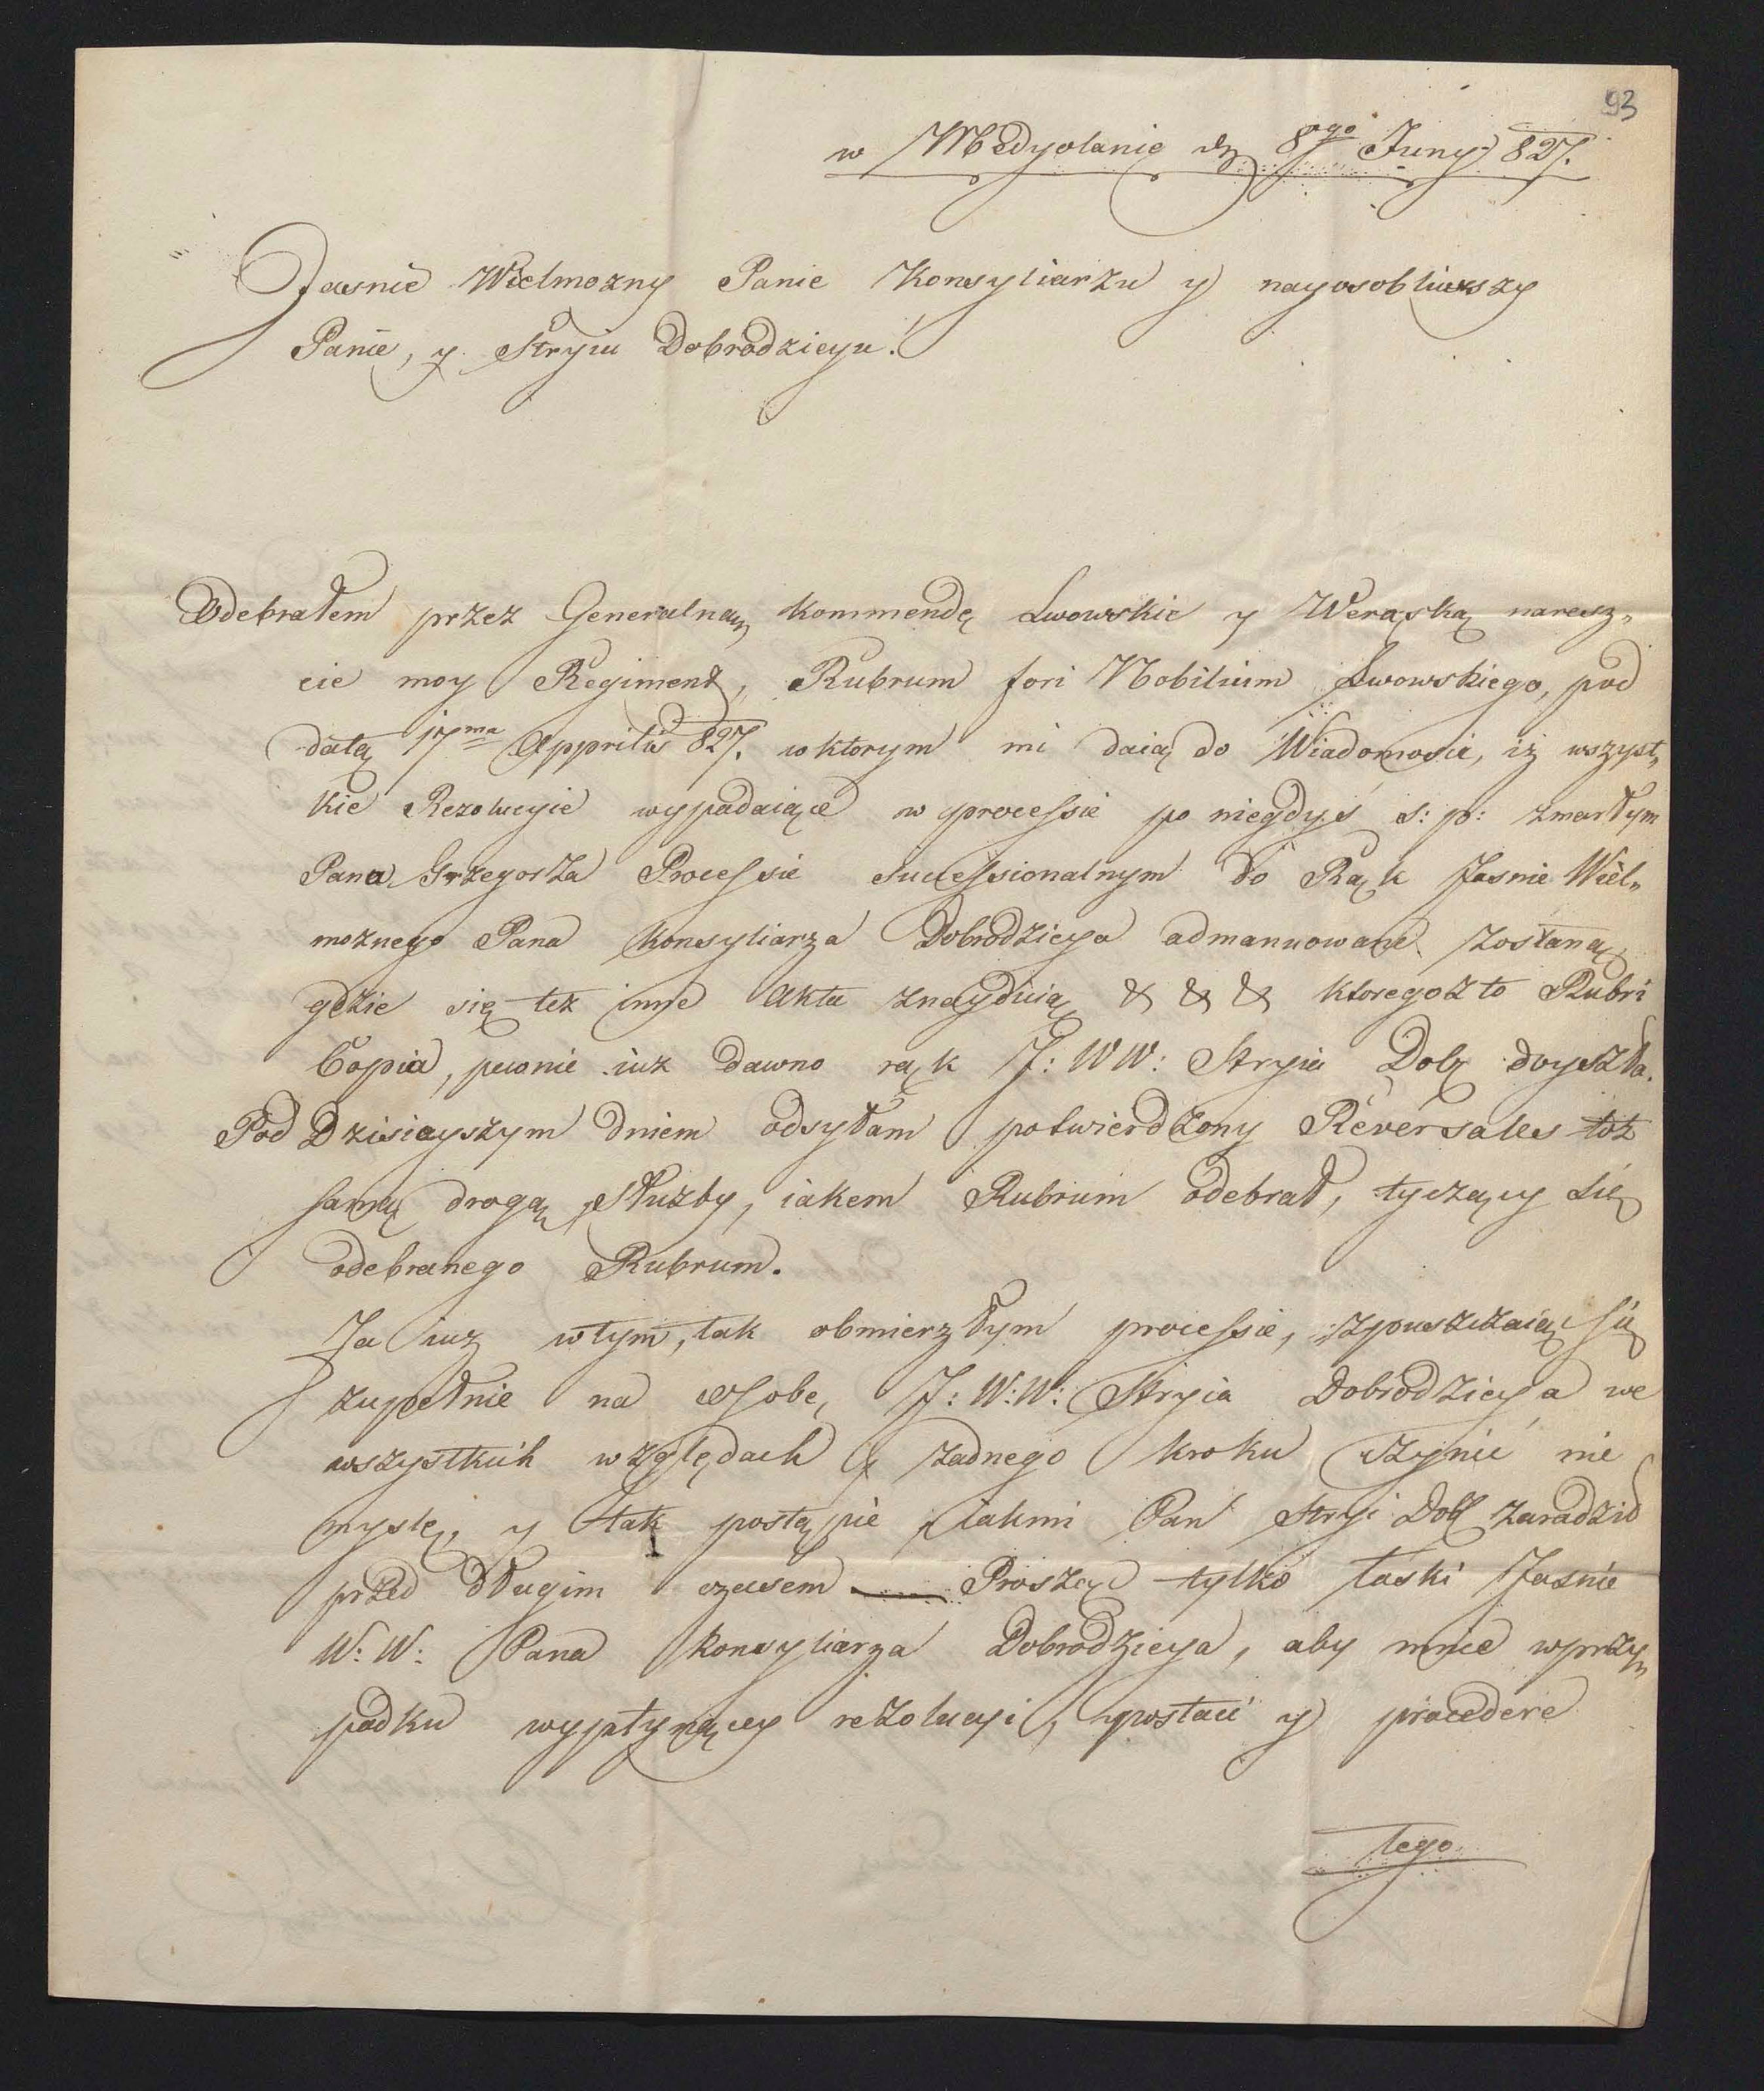 93
w Medyolanie dn 8go Juny 827.
Jasnie Wielmozny Panie Konsyliarzu y nayosobliwszy
Panie, y Stryiu Dobrodzieyu!
Odebrałem przez Generalną kommendę Lwowskie y Weraską naresz„
cie moy Regiment, Rubrum fori Nobilium Lwowskiego, pod
datą 17ma Apprilis 827. w ktorym mi daią do Wiadomoscie, iż wszyst„
kie Rezolucyie wypadaiące w processie po niegdyś s: p: zmarłym
Pana Grzegorza Processie Successionalnym do Rąk Jasnie Wiel„
moznego Pana Konsyliarza Dobrodzieya admanuowane zostaną,
gdzie się tez inne Akta znayduią, & & & ktoregoz to Rubri
Copia, pewnie iuz dawno rąk J: WW: Stryia Dob doyszła.
Pod Dzisieyszym dniem odsyłam potwierdzony Reversales toż
samą drogą Służby, iakem Rubrum odebrał, tyczący się
odebranego Rubrum.
Ja iuz w tym, tak obmierzłym processie, zpuszczaiąc się
zupełnie na osobę, J: W: W: Stryia Dobrodzieya we
wszystkich względach y zadnego kroku czynić nie
myslę, y tak postąpie iak mi Pan Stryi Dob zaradził
przed długim czasem — Proszę tylko łaski Jasnie
W: W: Pana Konsyliarza Dobrodzieya, aby mnie w przy„
padku wypłynącey rezolucyi, postać y procedere
tego